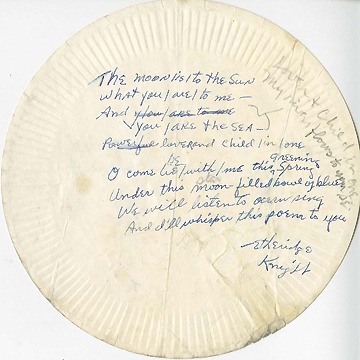 The moon/is/to the Sun
What you/are/to me —
And y/ou/are to me
You/are the SEA —
Powerful lover and Child/in/one
be greening
O come lie/with/me this Spring
Under this moon-filled bowl of blue
We will listen to ocean sing
And I'll whisper this poem to you
Etheridge
Knight